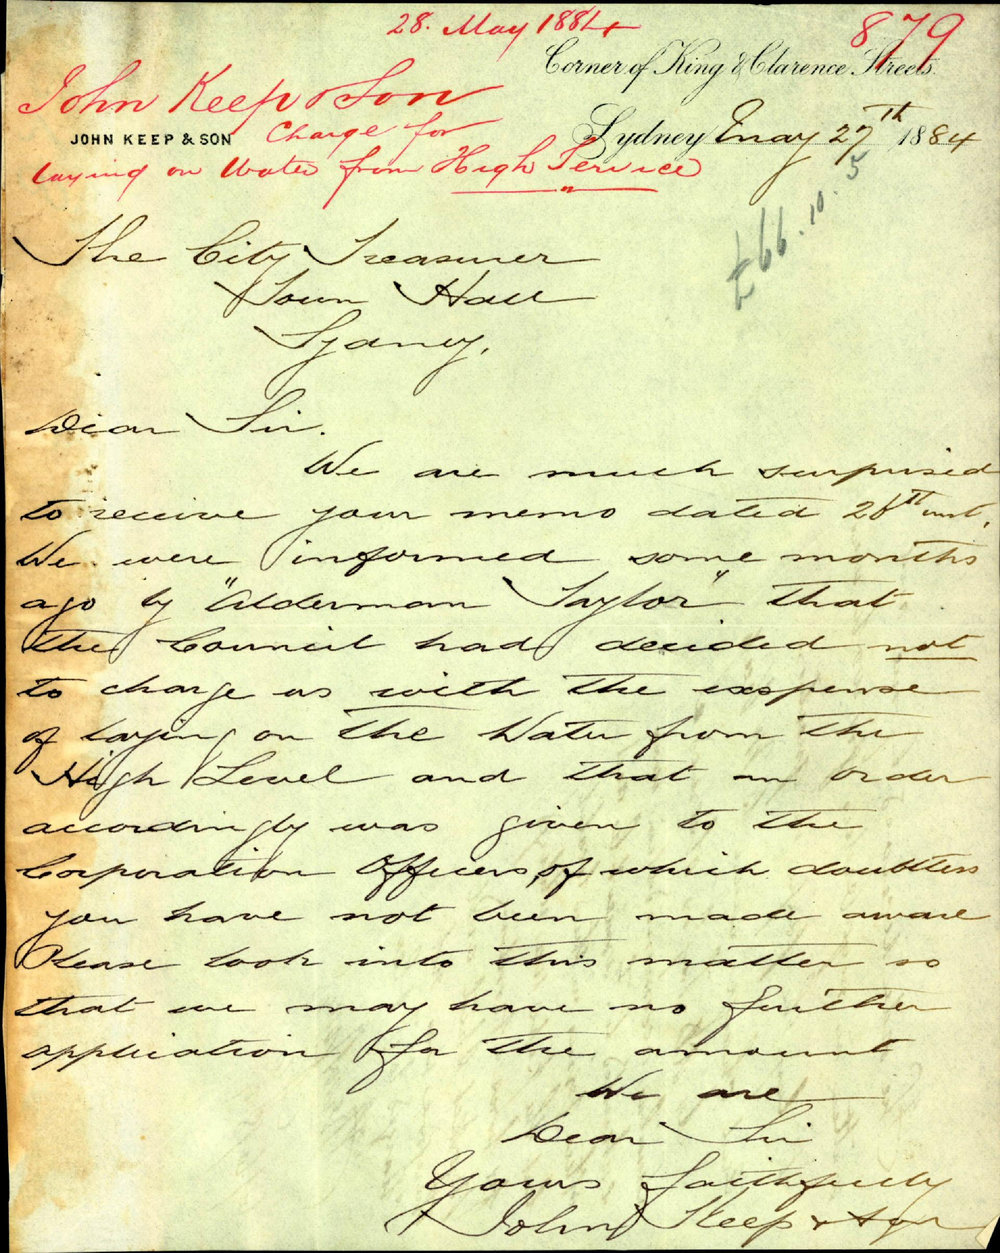 28. May 1884
879
Corner of King & Clarence Streets.
John Keep & Son
JOHN KEEP & SON
Charge for
laying on Water from High Service
Sydney May 27th 1884
£66.10.5
The City Treasurer
Town Hall
Sydney.
Dear Sir.
We are much surprised
to receive your memo dated 26th inst.
We were informed some months
ago by "Alderman Taylor" that
the Council had decided not
to charge us with the expense
of laying on the Water from the
High Level and that an order
accordingly was given to the
Corporation Officers, of which doubtless
you have not been made aware
Please look into this matter so
that we may have no further
application for the amount
We are
Dear Sir
Yours faithfully
John Keep & Son